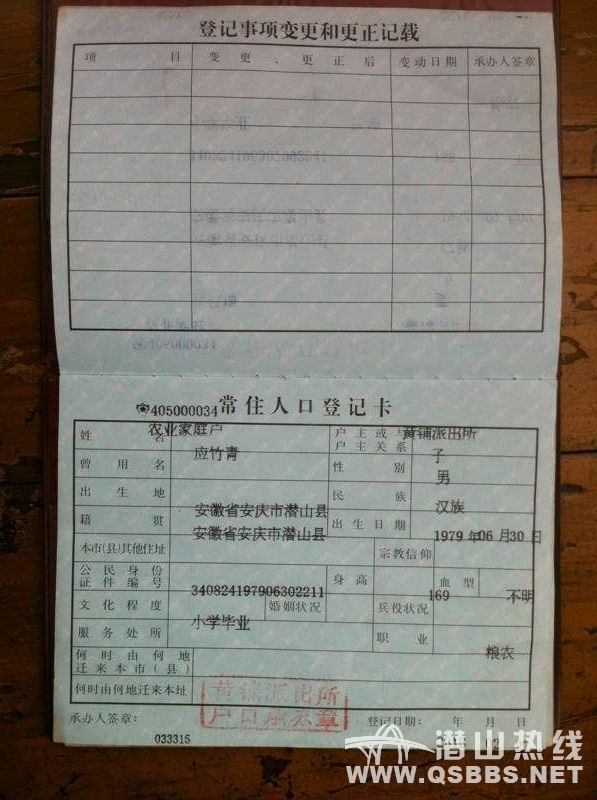 登记事项变更和更正记载
项 目 变 更 、 更 正 后 变动日期 承办人签章
405000034 常住人口登记卡
农业家庭户 黄铺派出所
姓 名 应竹青 户主或与户主关系 子
曾用名 性别 男
出生地 安徽省安庆市潜山县 民族 汉族
籍贯 安徽省安庆市潜山县 出生日期 1979年06月30日
本市(县)其他住址 宗教信仰
公民身份证件编号 340824197906302211 身高 169 血型 不明
文化程度 小学毕业 婚姻状况 兵役状况
服务处所 职业 粮农
何时由何地迁来本市(县)
何时由何地迁来本址
黄铺派出所
户口专用章
承办人签章: 登记日期: 年 月 日
033315
潜山热线
WWW.QSBBS.NET